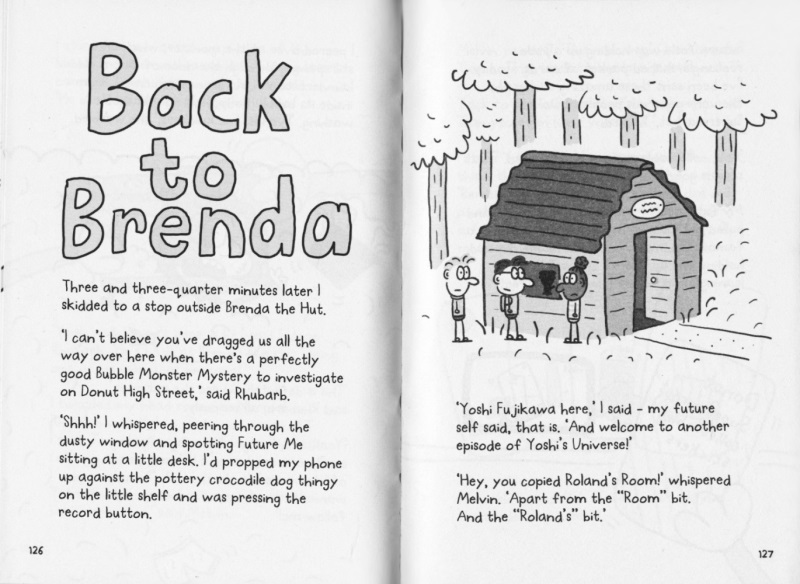 Back
to
Brenda
Three and three-quarter minutes later I
skidded to a stop outside Brenda the Hut.
'I can't believe you've dragged us all the
way over here when there's a perfectly
good Bubble Monster Mystery to investigate
on Donut High Street,' said Rhubarb.
'Shhh!' I whispered, peering through the
dusty window and spotting Future Me
sitting at a little desk. I'd propped my phone
up against the pottery crocodile dongy thingy
on the little shelf and was pressing the
record button.
126
'Yoshi Fujikawa here,' I said – my future
self said, that is. 'And welcome to another
episode of Yoshi's Universe!'
'Hey, you copied Roland's Room!' whispered
Melvin. 'Apart from the "Room" bit.
And the "Roland's" bit.'
127